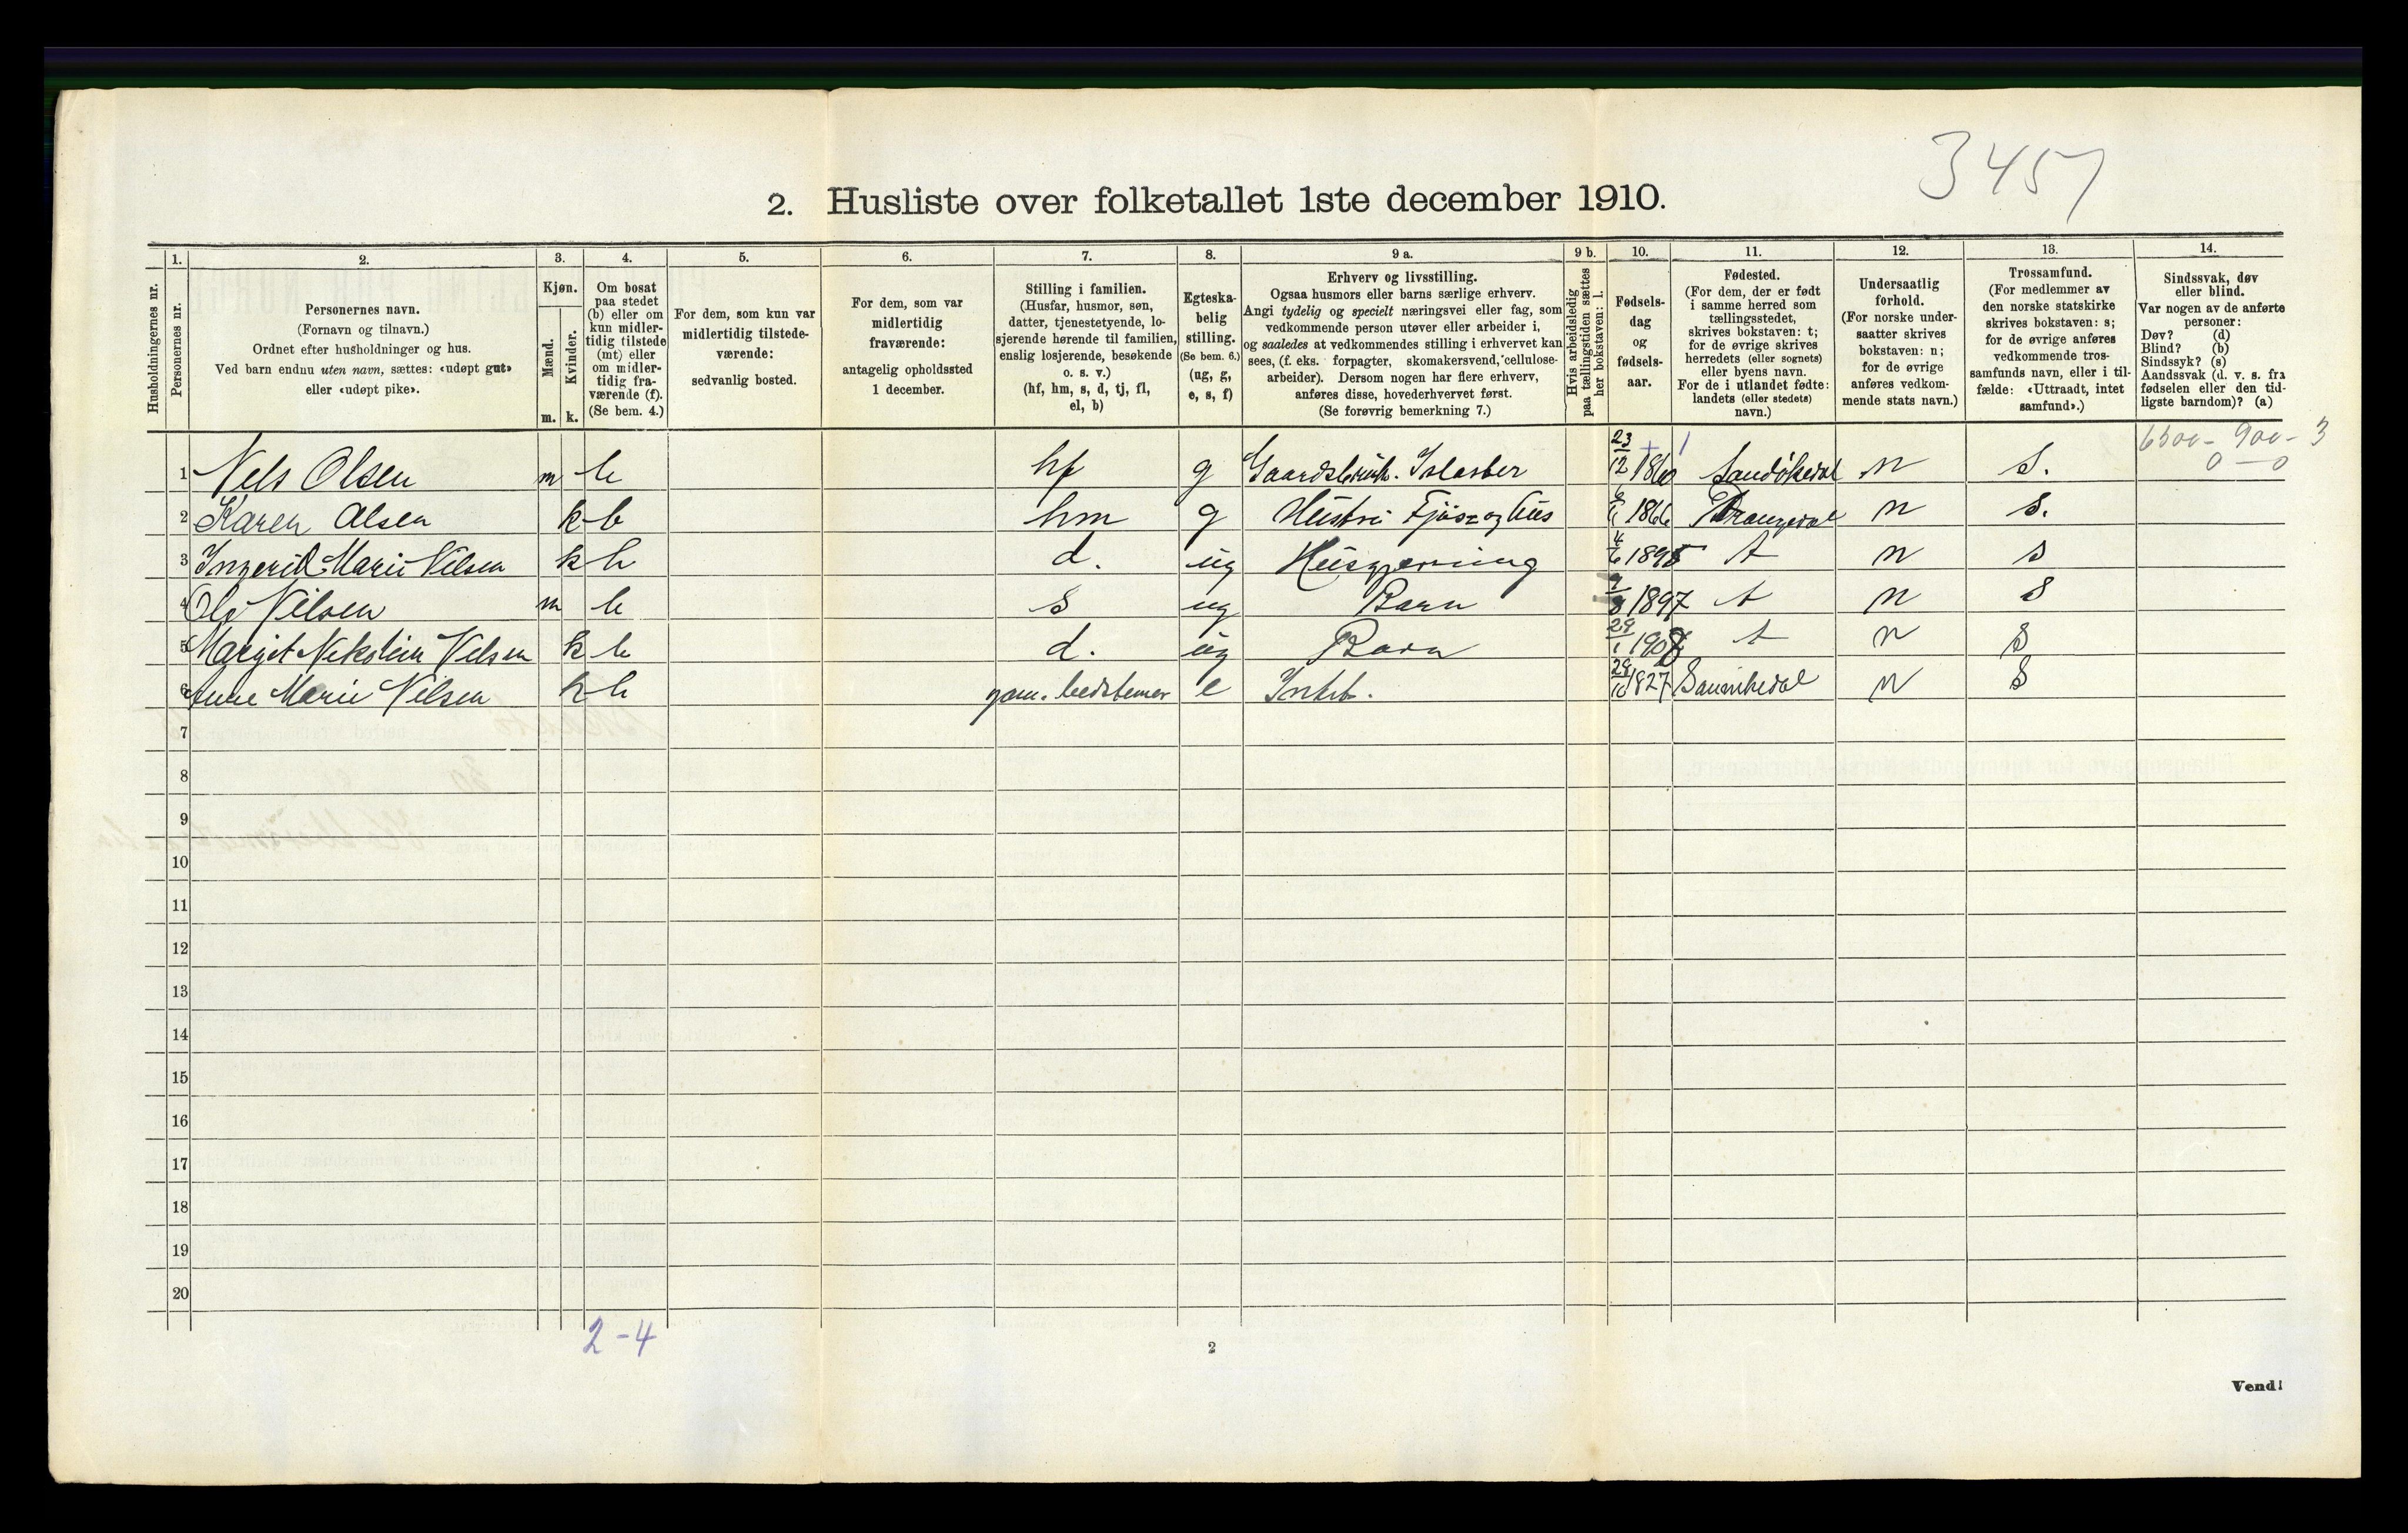 3457
2. Husliste over folketallet 1ste december 1910.
1. 2. 3. 4. 5. 6. 7. 8. 9 a. 9 b. 10. 11. 12. 13. 14.
Husholdningernes nr.
Personernes nr.
Personernes navn.
(Fornavn og tilnavn.)
Ordnet efter husholdninger og hus.
Ved barn endnu uten navn, sættes: «udøpt gut»
eller «udøpt pike».
Kjøn.
Mænd.
Kvinder.
m. k.
Om bosat
paa stedet
(b) eller om
kun midler-
tidig tilstede
(mt) eller
om midler-
tidig fra-
værende (f).
(Se bem. 4.)
For dem, som kun var
midlertidig tilstede-
værende:
sedvanlig bosted.
For dem, som var
midlertidig
fraværende:
antagelig opholdssted
1 december.
Stilling i familien.
(Husfar, husmor, søn,
datter, tjenestetyende, lo-
sjerende hørende til familien,
enslig losjerende, besøkende
o. s. v.)
(hf, hm, s, d, tj, fl,
el, b)
Egteska-
belig
stilling.
(Se bem. 6.)
(ug, g,
e, s, f)
Erhverv og livsstilling.
Ogsaa husmors eller barns særlige erhverv.
Angi tydelig og specielt næringsvei eller fag, som
vedkommende person utøver eller arbeider i,
og saaledes at vedkommendes stilling i erhvervet kan
sees, (f. eks. forpagter, skomakersvend, cellulose-
arbeider). Dersom nogen har flere erhverv,
anføres disse, hovederhvervet først.
(Se forøvrig bemerkning 7.)
Hvis arbeidsledig
paa tællingstiden sættes
her bokstaven: l.
Fødsels-
dag
og
fødsels-
aar.
Fødested.
(For dem, der er født
i samme herred som
tællingsstedet,
skrives bokstaven: t;
for de øvrige skrives
herredets (eller sognets)
eller byens navn.
For de i utlandet fødte:
landets (eller stedets)
navn.)
Undersaatlig
forhold.
(For norske under-
saatter skrives
bokstaven: n;
for de øvrige
anføres vedkom-
mende stats navn.)
Trossamfund.
(For medlemmer av
den norske statskirke
skrives bokstaven: s;
for de øvrige anføres
vedkommende tros-
samfunds navn, eller i til-
fælde: «Uttraadt, intet
samfund».)
Sindssvak, døv
eller blind.
Var nogen av de anførte
personer:
Døv? (d)
Blind? (b)
Sindssyk? (s)
Aandssvak (d. v. s. fra
fødselen eller den tid-
ligste barndom)? (a)
6500 - 900 - 3
0 - 0
1 Nels Olsen m b hf g Gaardsbruk. 23/12 1860 Sandökedal n S.
2 Karen Olsen k b hm g Hustru Fjös og hus 1866 Drangedal n S.
3 Ingerid Marie Nilsen k b d. ug Husgjerning 4/6 1895 t n s
4 Ole Nilsen m b s ug Barn 1897 t n S
5 Margit Nikoline Nilsen k b d. ug Barn 29/1 1908 t n S
6 Anne Marie Nilsen k b gam. bedstemor e 1827 Sannikedal n S
7
8
9
10
11
12
13
14
15
16
17
18
19
20
2-4
2
Vend!